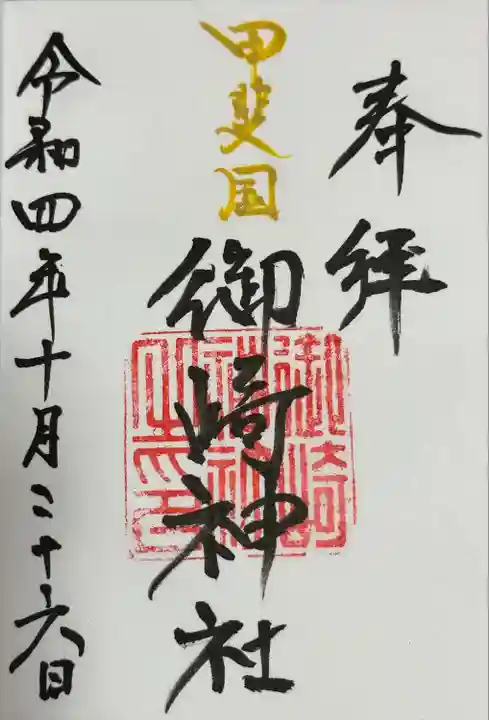 奉拝
甲斐国
御崎神社
御崎神社之印
令和四年十月二十六日